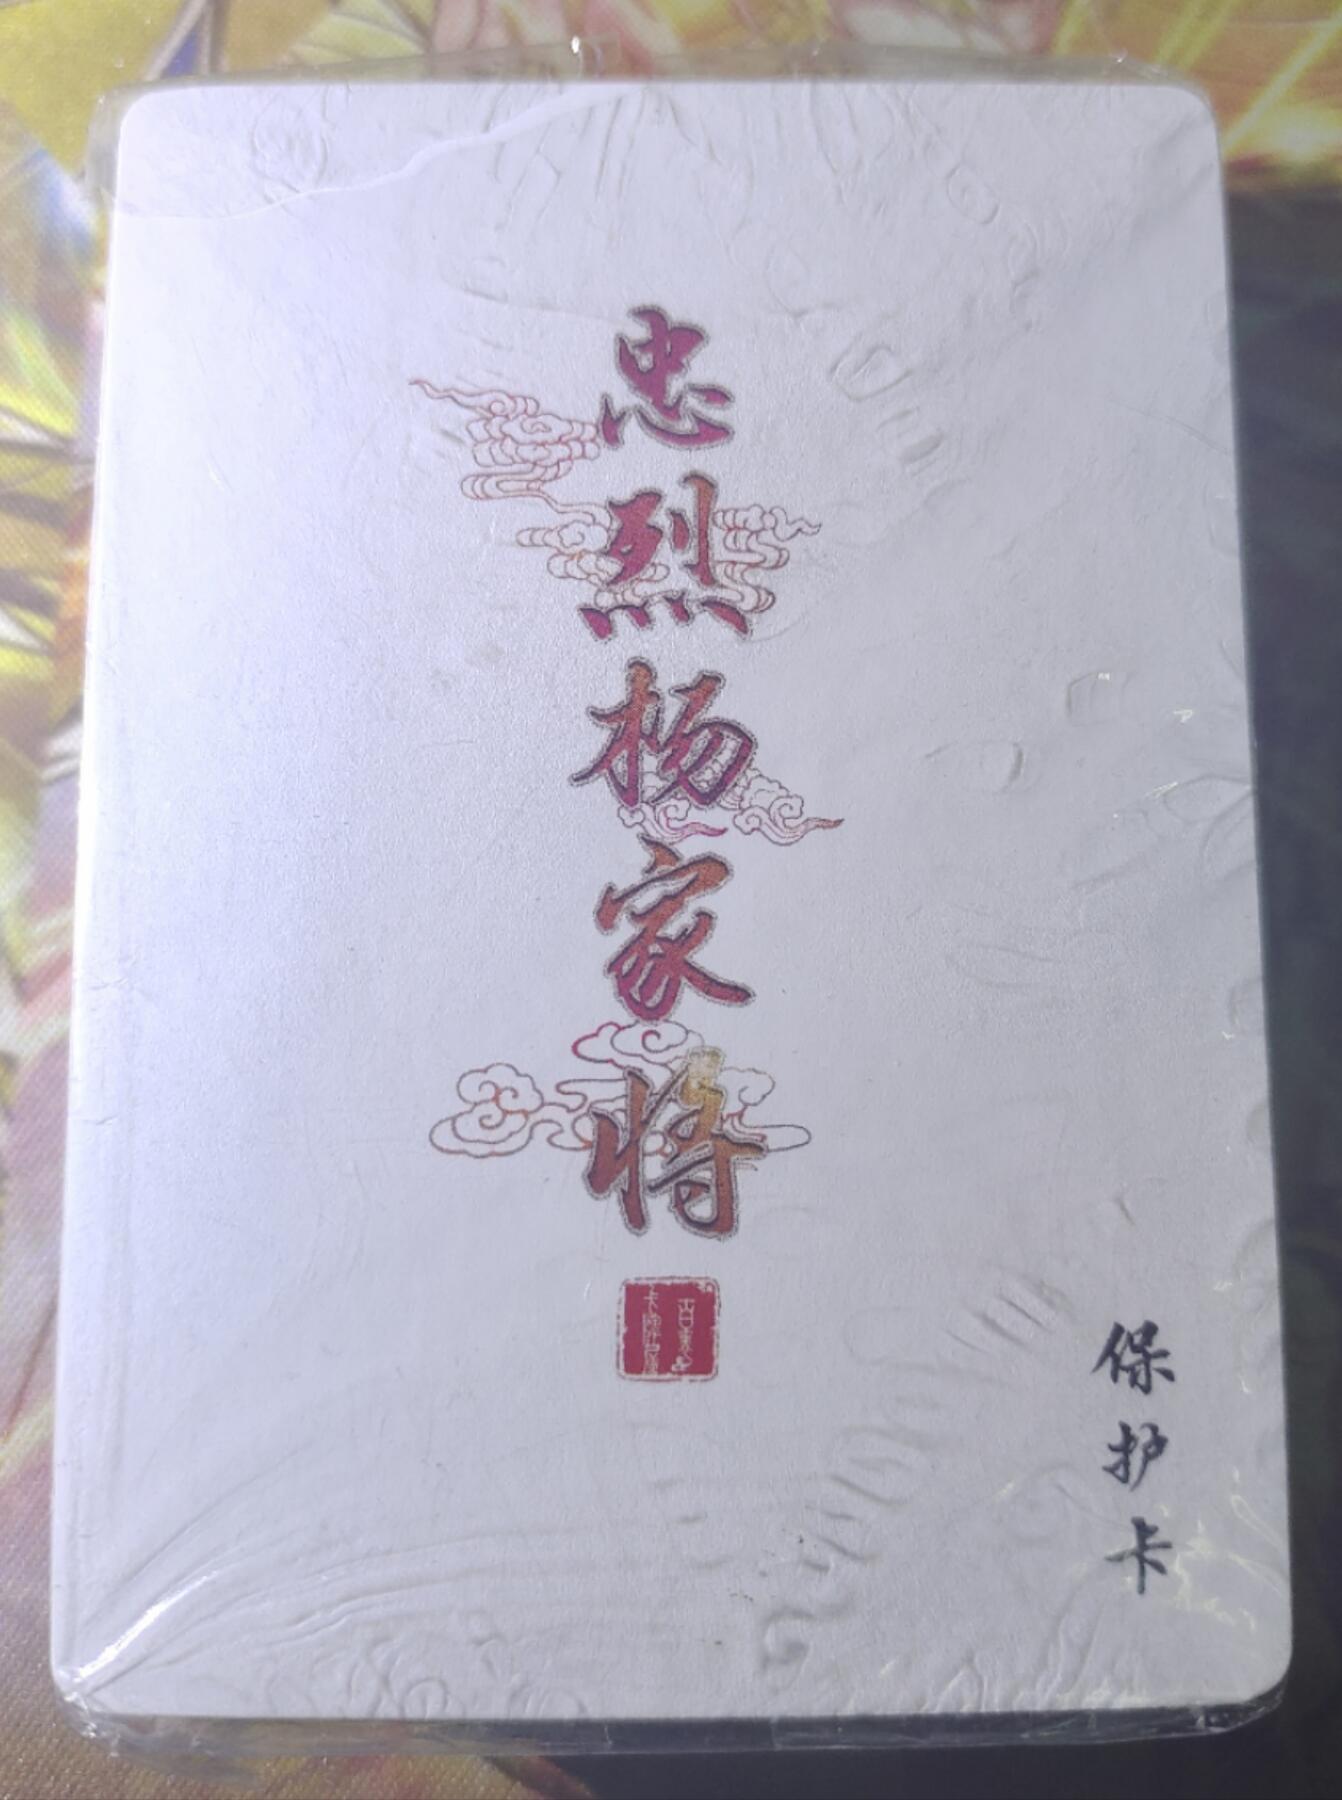 忠烈杨家将
保护卡